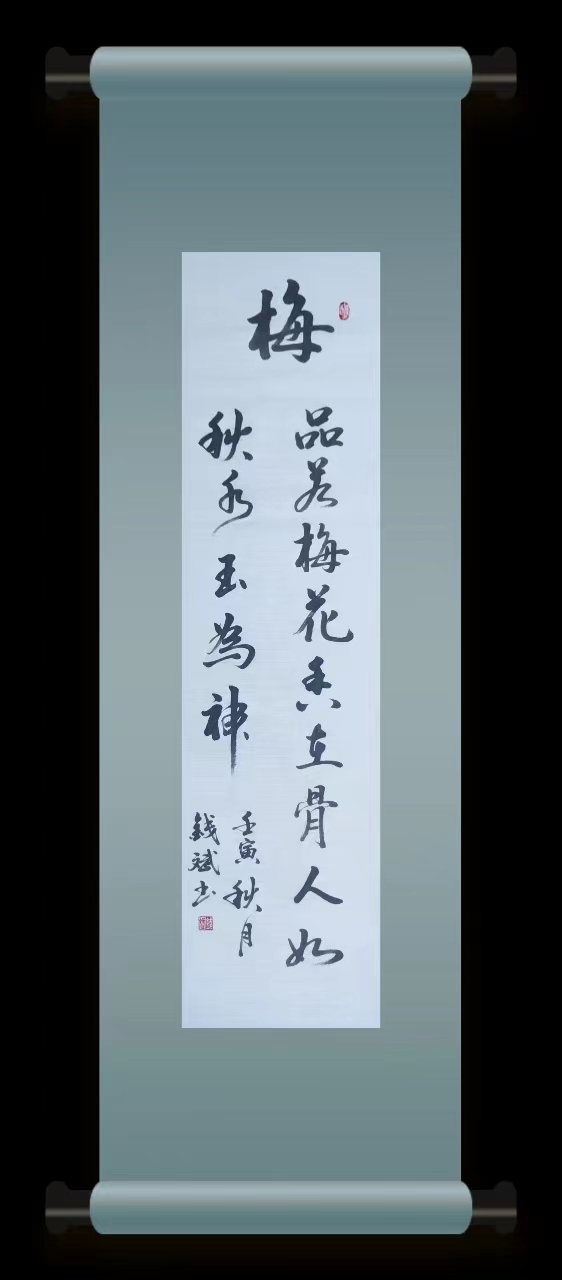 梅
品若梅花香在骨人如
秋水玉為神
壬寅秋月
錢斌书